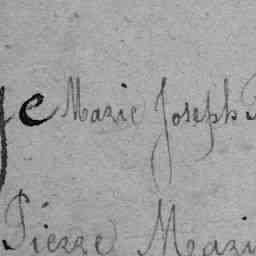 e Marie Joseph
Pierre Mari